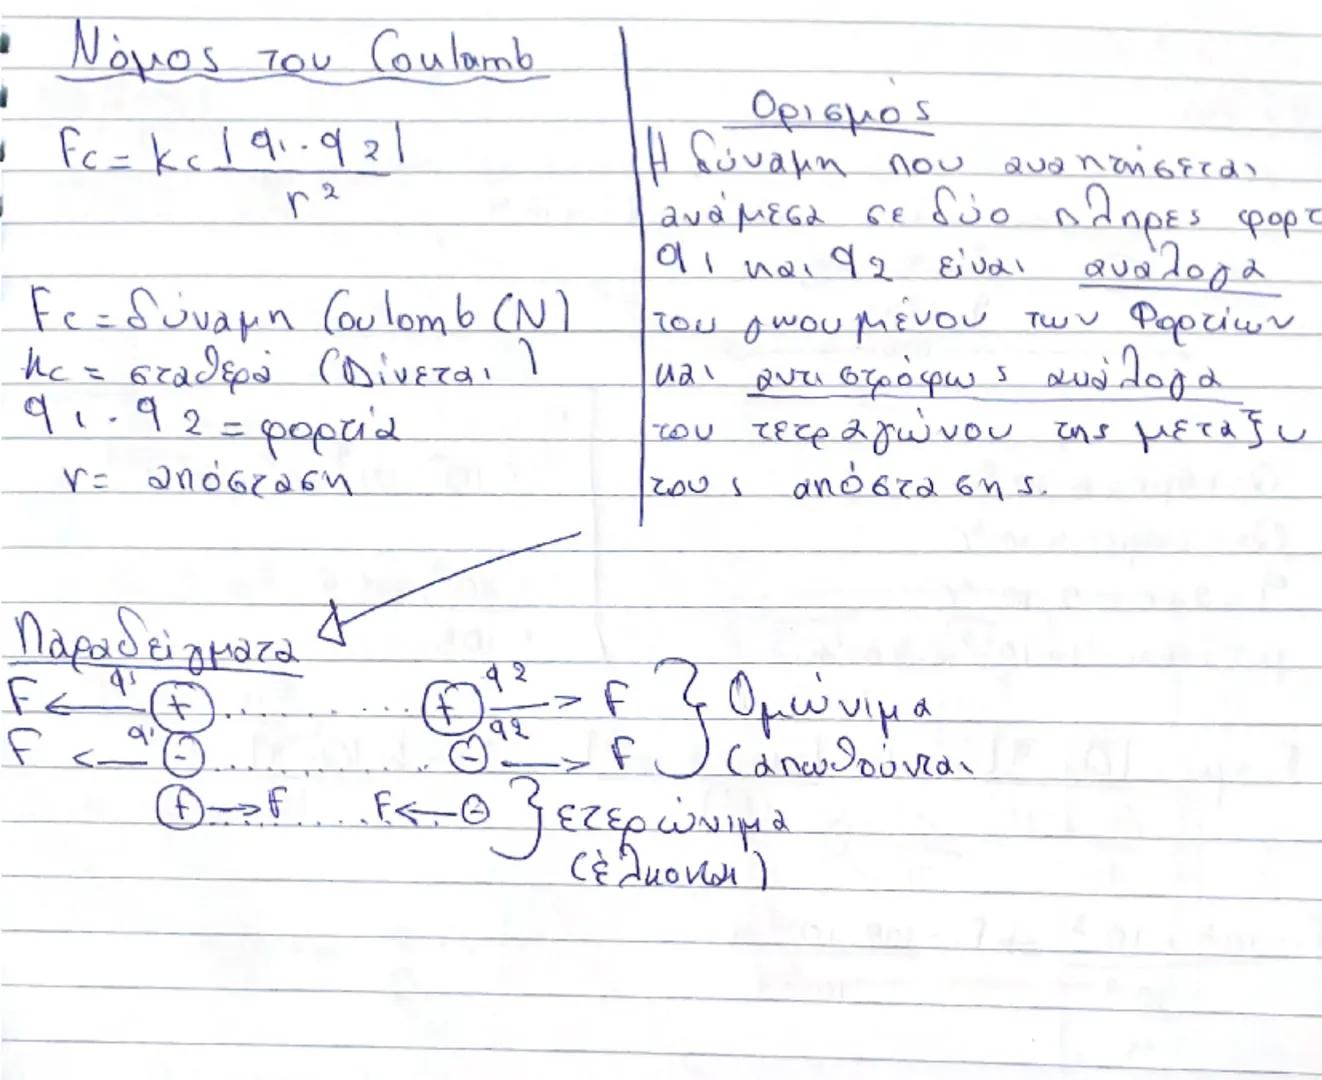 Νόμος του Coulamb
Fc = kc |q1·q2|
r²
Fc = δύναμη Coulomb (N)
kc = σταθερά (Δίνεται)
q1·q2 = φορτία
r = απόσταση
Ορισμός
Η δύναμη που αναπτήσεται
ανάμεσα σε δύο πλήρες φορτ
q1 και q2 είναι ανάλογα
του γινουμένου των Φορτίων
και αντιστρόφως ανάλογα
του τετραγώνου της μεταξυ
τους απόστασης.
Παραδείγματα
F ← q1 (+) ............ (+) q2 → F } Ομώνιμα
F ← q1 (-) ............ (-) q2 → F (απωθούνται
(+) → F ...... F ← (-) } ετερώνιμα
(έλκονται)